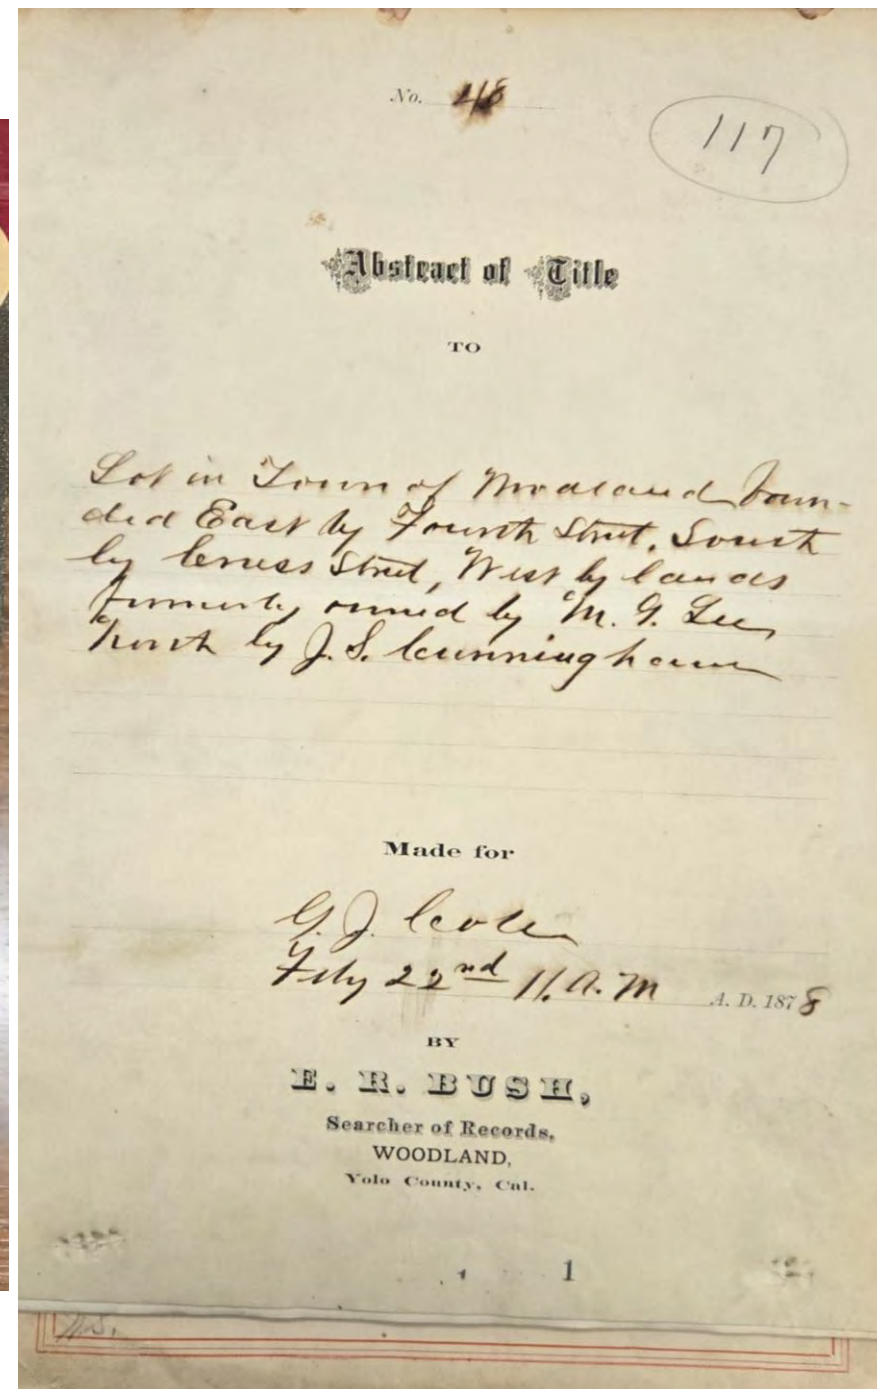 No. 48
117
Abstract of Title
TO
Lot in Town of Woodland boun-
ded East by Fourth Street, South
by Cross Street, West by lands
formerly owned by M. G. Lee,
North by J. S. Cunningham
Made for
G. J. Cole
Feby 22nd 11. A. M A. D. 1878
BY
E. R. BUSH,
Searcher of Records,
WOODLAND,
Yolo County, Cal.
1